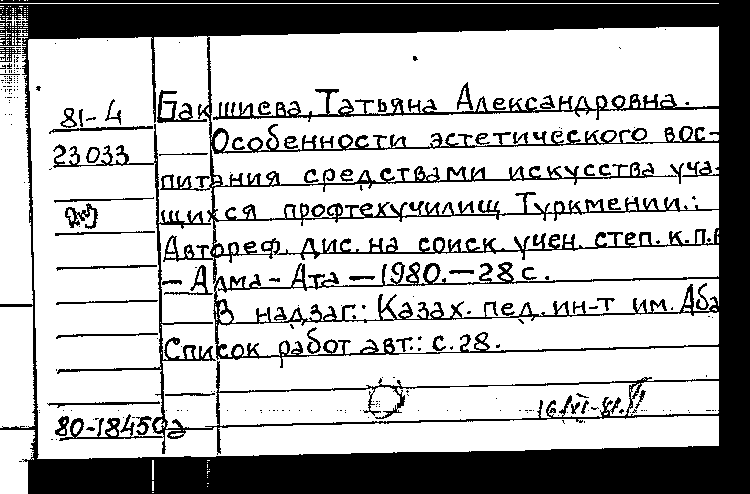 81-4
23033
Бакшиева, Татьяна Александровна.
Особенности эстетического вос-
питания средствами искусства уча-
щихся профтехучилищ Туркмении.:
Автореф. дис. на соиск. учен. степ. к.п.н
- Алма-Ата - 1980. - 28 с.
В надзаг.: Казах. пед. ин-т им. Аба
Список работ авт.: с. 28.
16/VI-81.
80-18450а